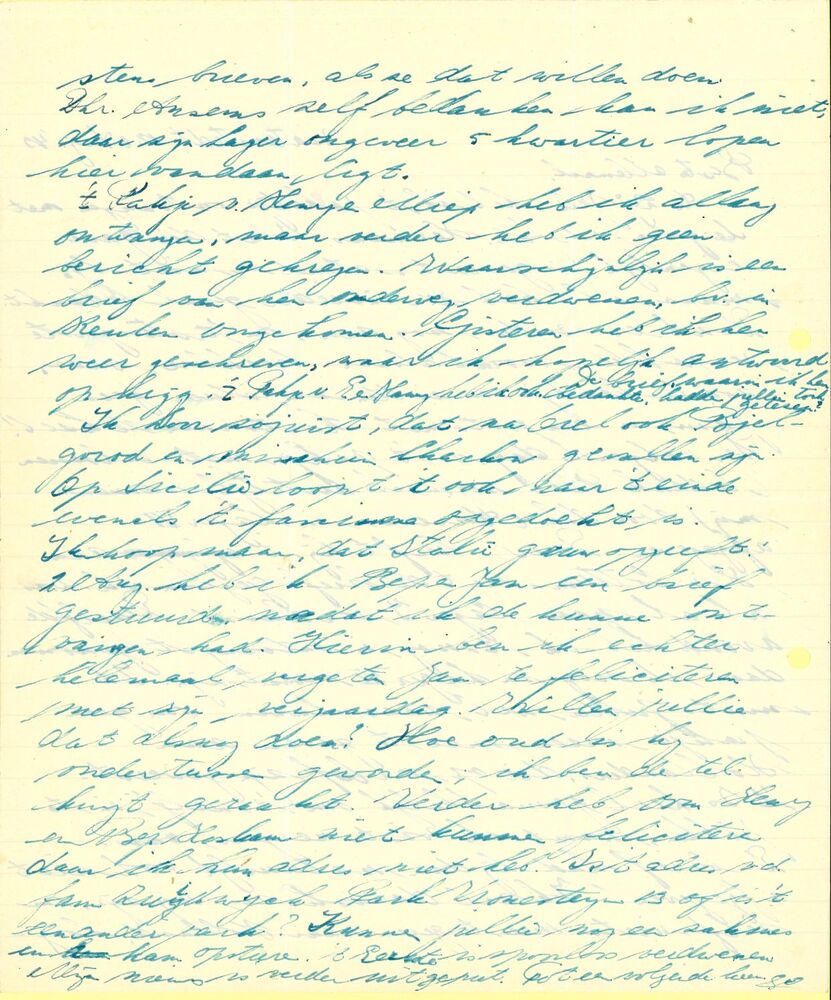 stens brieven, als ze dat willen doen.
Dhr. Ansems zelf bedanken kan ik niet,
daar zijn lager ongeveer 5 kwartier lopen
hier vandaan, ligt.
't Pakje v. Henye Miep heb ik allang
ontvangen, maar verder heb ik geen
bericht gekregen. Waarschijnlijk is een
brief van hen onderweg verdwenen, bv. in
Keulen omgekomen. Gisteren heb ik hen
weer geschreven, waar ik hopelijk antwoord
op krijg. 't Pakje v. heb ik ook bedankt. De brief waarin ik hen
hadden jullie toch
gelezen?
Ik hoor zojuist, dat na Orel ook Bjel-
gorod en misschien Charkow gevallen zijn.
Op Sicilië loopt 't ook naar 't einde
evenals 't fascisme opgedoekt is.
Ik hoop maar, dat Italië gauw opgeeft.
2 Aug. heb ik Bep e Jan een brief
gestuurd, nadat ik de hunne ont-
vangen had. Hierin ben ik echter
helemaal vergeten Jan te feliciteren
met zijn verjaardag. Willen jullie
dat alsnog doen? Hoe oud is hij
ondertussen geworden, ik ben de tel
kwijt geraakt. Verder heb, oom Henry
en Bep niet kunnen feliciteren
daar ik hun adres niet heb. Is 't adres v.d.
fam Zuijdwyck Park Vronesteyn 13 of is 't
een ander park? Kunnen jullie nog een zakmes
en kam opsturen. 't Eerste is spoorloos verdwenen
Mijn nieuws is verder uitgeput. Tot een volgende keer